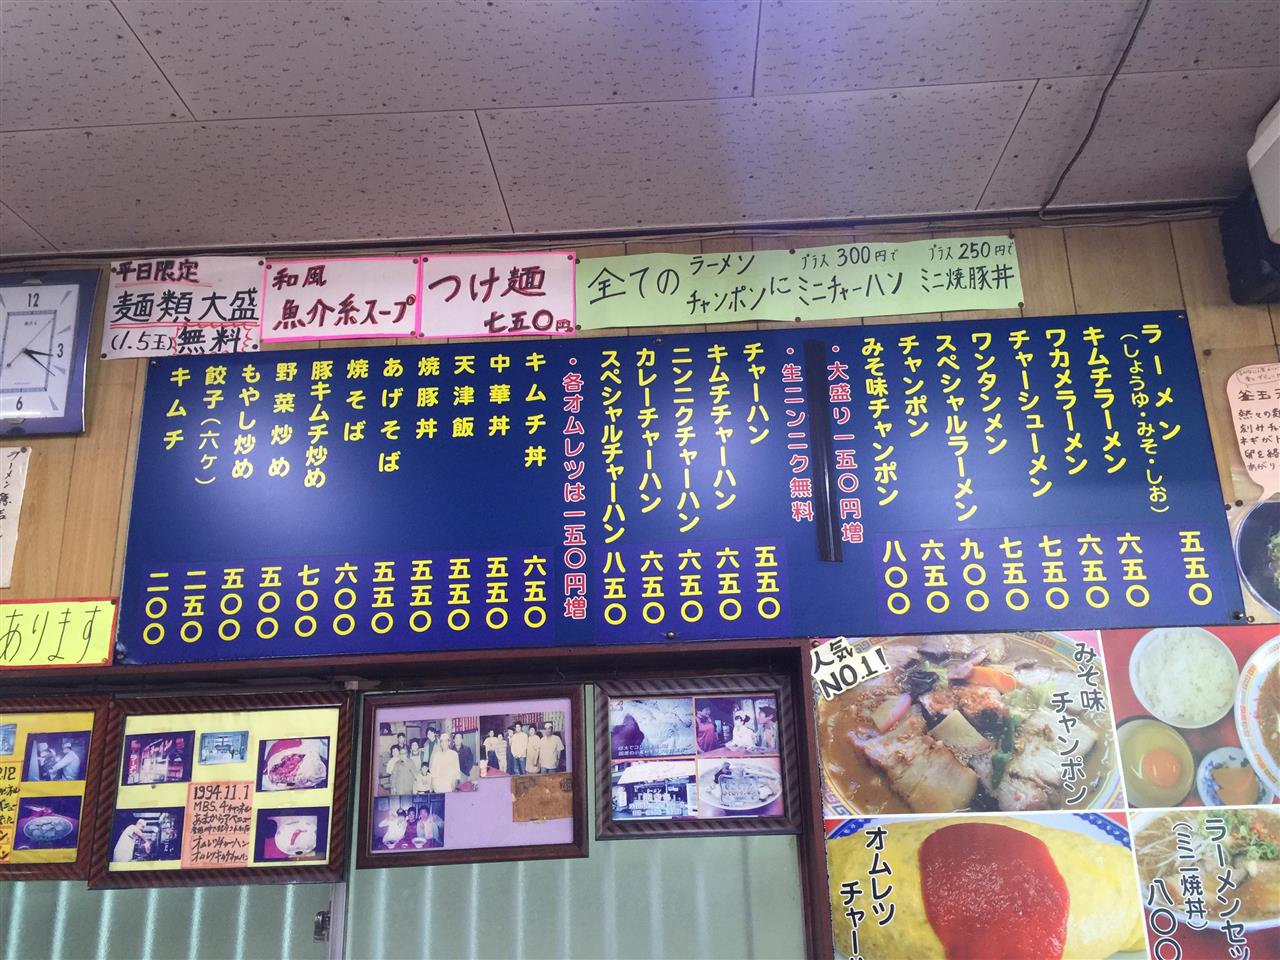 平日限定
麺類大盛
(1.5玉)無料
和風
魚介系スープ
つけ麺
七五〇円
全てのラーメン
チャンポンに
プラス300円で
ミニチャーハン
プラス250円で
ミニ焼豚丼
ラーメン(しょうゆ・みそ・しお) 五五〇
キムチラーメン 六五〇
ワカメラーメン 六五〇
チャーシューメン 七五〇
ワンタンメン 七五〇
スペシャルラーメン 九〇〇
チャンポン 六五〇
みそ味チャンポン 八〇〇
・大盛り一五〇円増
・生ニンニク無料
チャーハン 五五〇
キムチチャーハン 六五〇
ニンニクチャーハン 六五〇
カレーチャーハン 六五〇
スペシャルチャーハン 八五〇
・各オムレツは一五〇円増
キムチ丼 六五〇
中華丼 五五〇
天津飯 五五〇
焼豚丼 五五〇
あげそば 五五〇
焼そば 六〇〇
豚キムチ炒め 七〇〇
野菜炒め 五〇〇
もやし炒め 五〇〇
餃子(六ヶ) 二五〇
キムチ 二〇〇
12
3
6
あります
1994.11.1
MBS.4チャンネル
あまからアベニュー
オムレツチャーハン
人気
NO.1!
みそ味
チャンポン
オムレツ
チャー
ラーメンセッ
(ミニ焼丼)
八〇〇